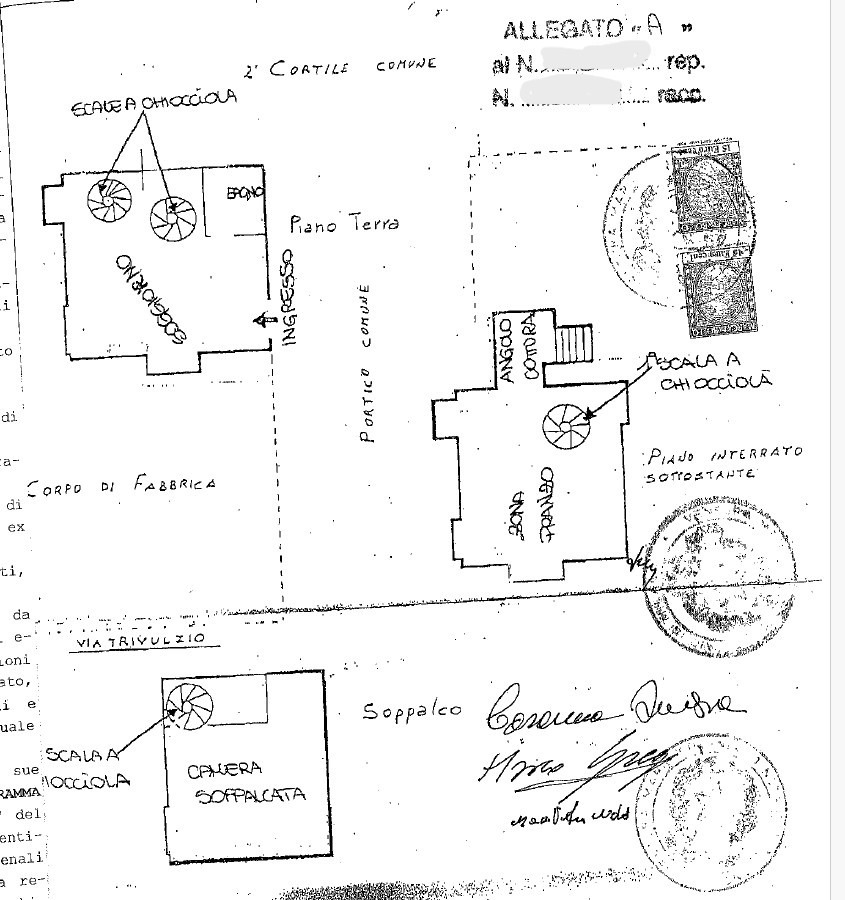 ALLEGATO "A"
al N. rep.
N. racc.
2° CORTILE COMUNE
SCALE A CHIOCCIOLA
BAGNO
Piano Terra
SOGGIORNO
INGRESSO
PORTICO COMUNE
ANGOLO
COTTURA
SCALA A
CHIOCCIOLA
PIANO INTERRATO
SOTTOSTANTE
ZONA
PRANZO
CORPO DI FABBRICA
di
di
ex
ti,
da
e-
ioni
ato,
i e
uale
sue
RAMMA
del
enti-
enali
a re-
VIA TRIVULZIO
Soppalco
SCALA A
IOCCIOLA
CAMERA
SOPPALCATA